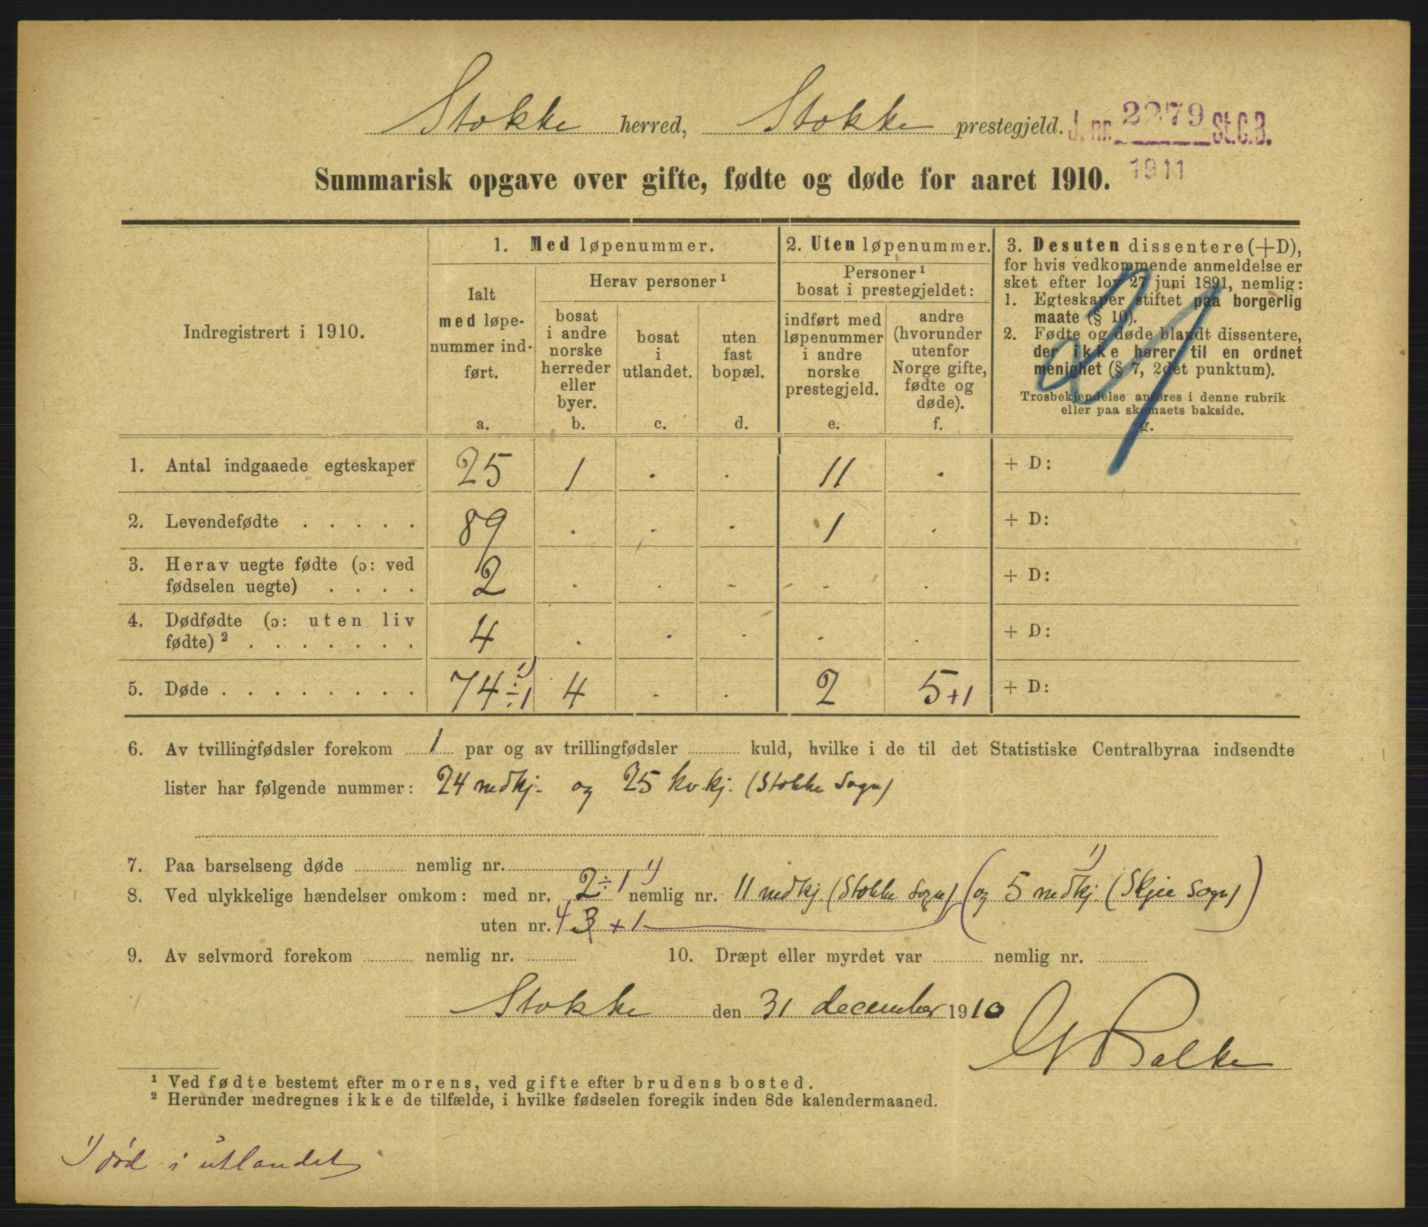 Stokke herred, Stokke prestegjeld. J. nr. 2279 St.C.B.
1911
Summarisk opgave over gifte, fødte og døde for aaret 1910.
Indregistrert i 1910.
1. Med løpenummer.
Ialt
med løpe-
nummer ind-
ført.
a.
Herav personer ¹
bosat
i andre
norske
herreder
eller
byer.
b.
bosat
i
utlandet.
c.
uten
fast
bopæl.
d.
2. Uten løpenummer.
Personer ¹
bosat i prestegjeldet:
indført med
løpenummer
i andre
norske
prestegjeld.
e.
andre
(hvorunder
utenfor
Norge gifte,
fødte og
døde).
f.
3. Desuten dissentere (+D),
for hvis vedkommende anmeldelse er
sket efter lov 27 juni 1891, nemlig:
1. Egteskaper stiftet paa borgerlig
maate (§ 10).
2. Fødte og døde blandt dissentere,
der ikke hører til en ordnet
menighet (§ 7, 2det punktum).
Trosbekjendelse anføres i denne rubrik
eller paa skemaets bakside.
g.
21
1. Antal indgaaede egteskaper 25 1 . . 11 . + D:
2. Levendefødte . . . . . 89 . . . 1 . + D:
3. Herav uegte fødte (ɔ: ved
fødselen uegte) . . . . 2 . . . . . + D:
4. Dødfødte (ɔ: uten liv
fødte) ² . . . . . . . 4 . . . . . + D:
5. Døde . . . . . . . . 74 ÷1 ¹) 4 . . 2 5 +1 + D:
6. Av tvillingfødsler forekom 1 par og av trillingfødsler kuld, hvilke i de til det Statistiske Centralbyraa indsendte
lister har følgende nummer: 24 mdkj. og 25 kv.kj. (Stokke Sogn)
7. Paa barselseng døde nemlig nr.
8. Ved ulykkelige hændelser omkom: med nr. 2 ÷ 1 ¹) nemlig nr. 11 mdkj. (Stokke Sogn) (og 5 mdkj. ¹) (Skjee Sogn)
uten nr. 4 3 + 1
9. Av selvmord forekom nemlig nr. 10. Dræpt eller myrdet var nemlig nr.
Stokke den 31 december 1910
G Balke
¹ Ved fødte bestemt efter morens, ved gifte efter brudens bosted.
² Herunder medregnes ikke de tilfælde, i hvilke fødselen foregik inden 8de kalendermaaned.
¹) død i utlandet